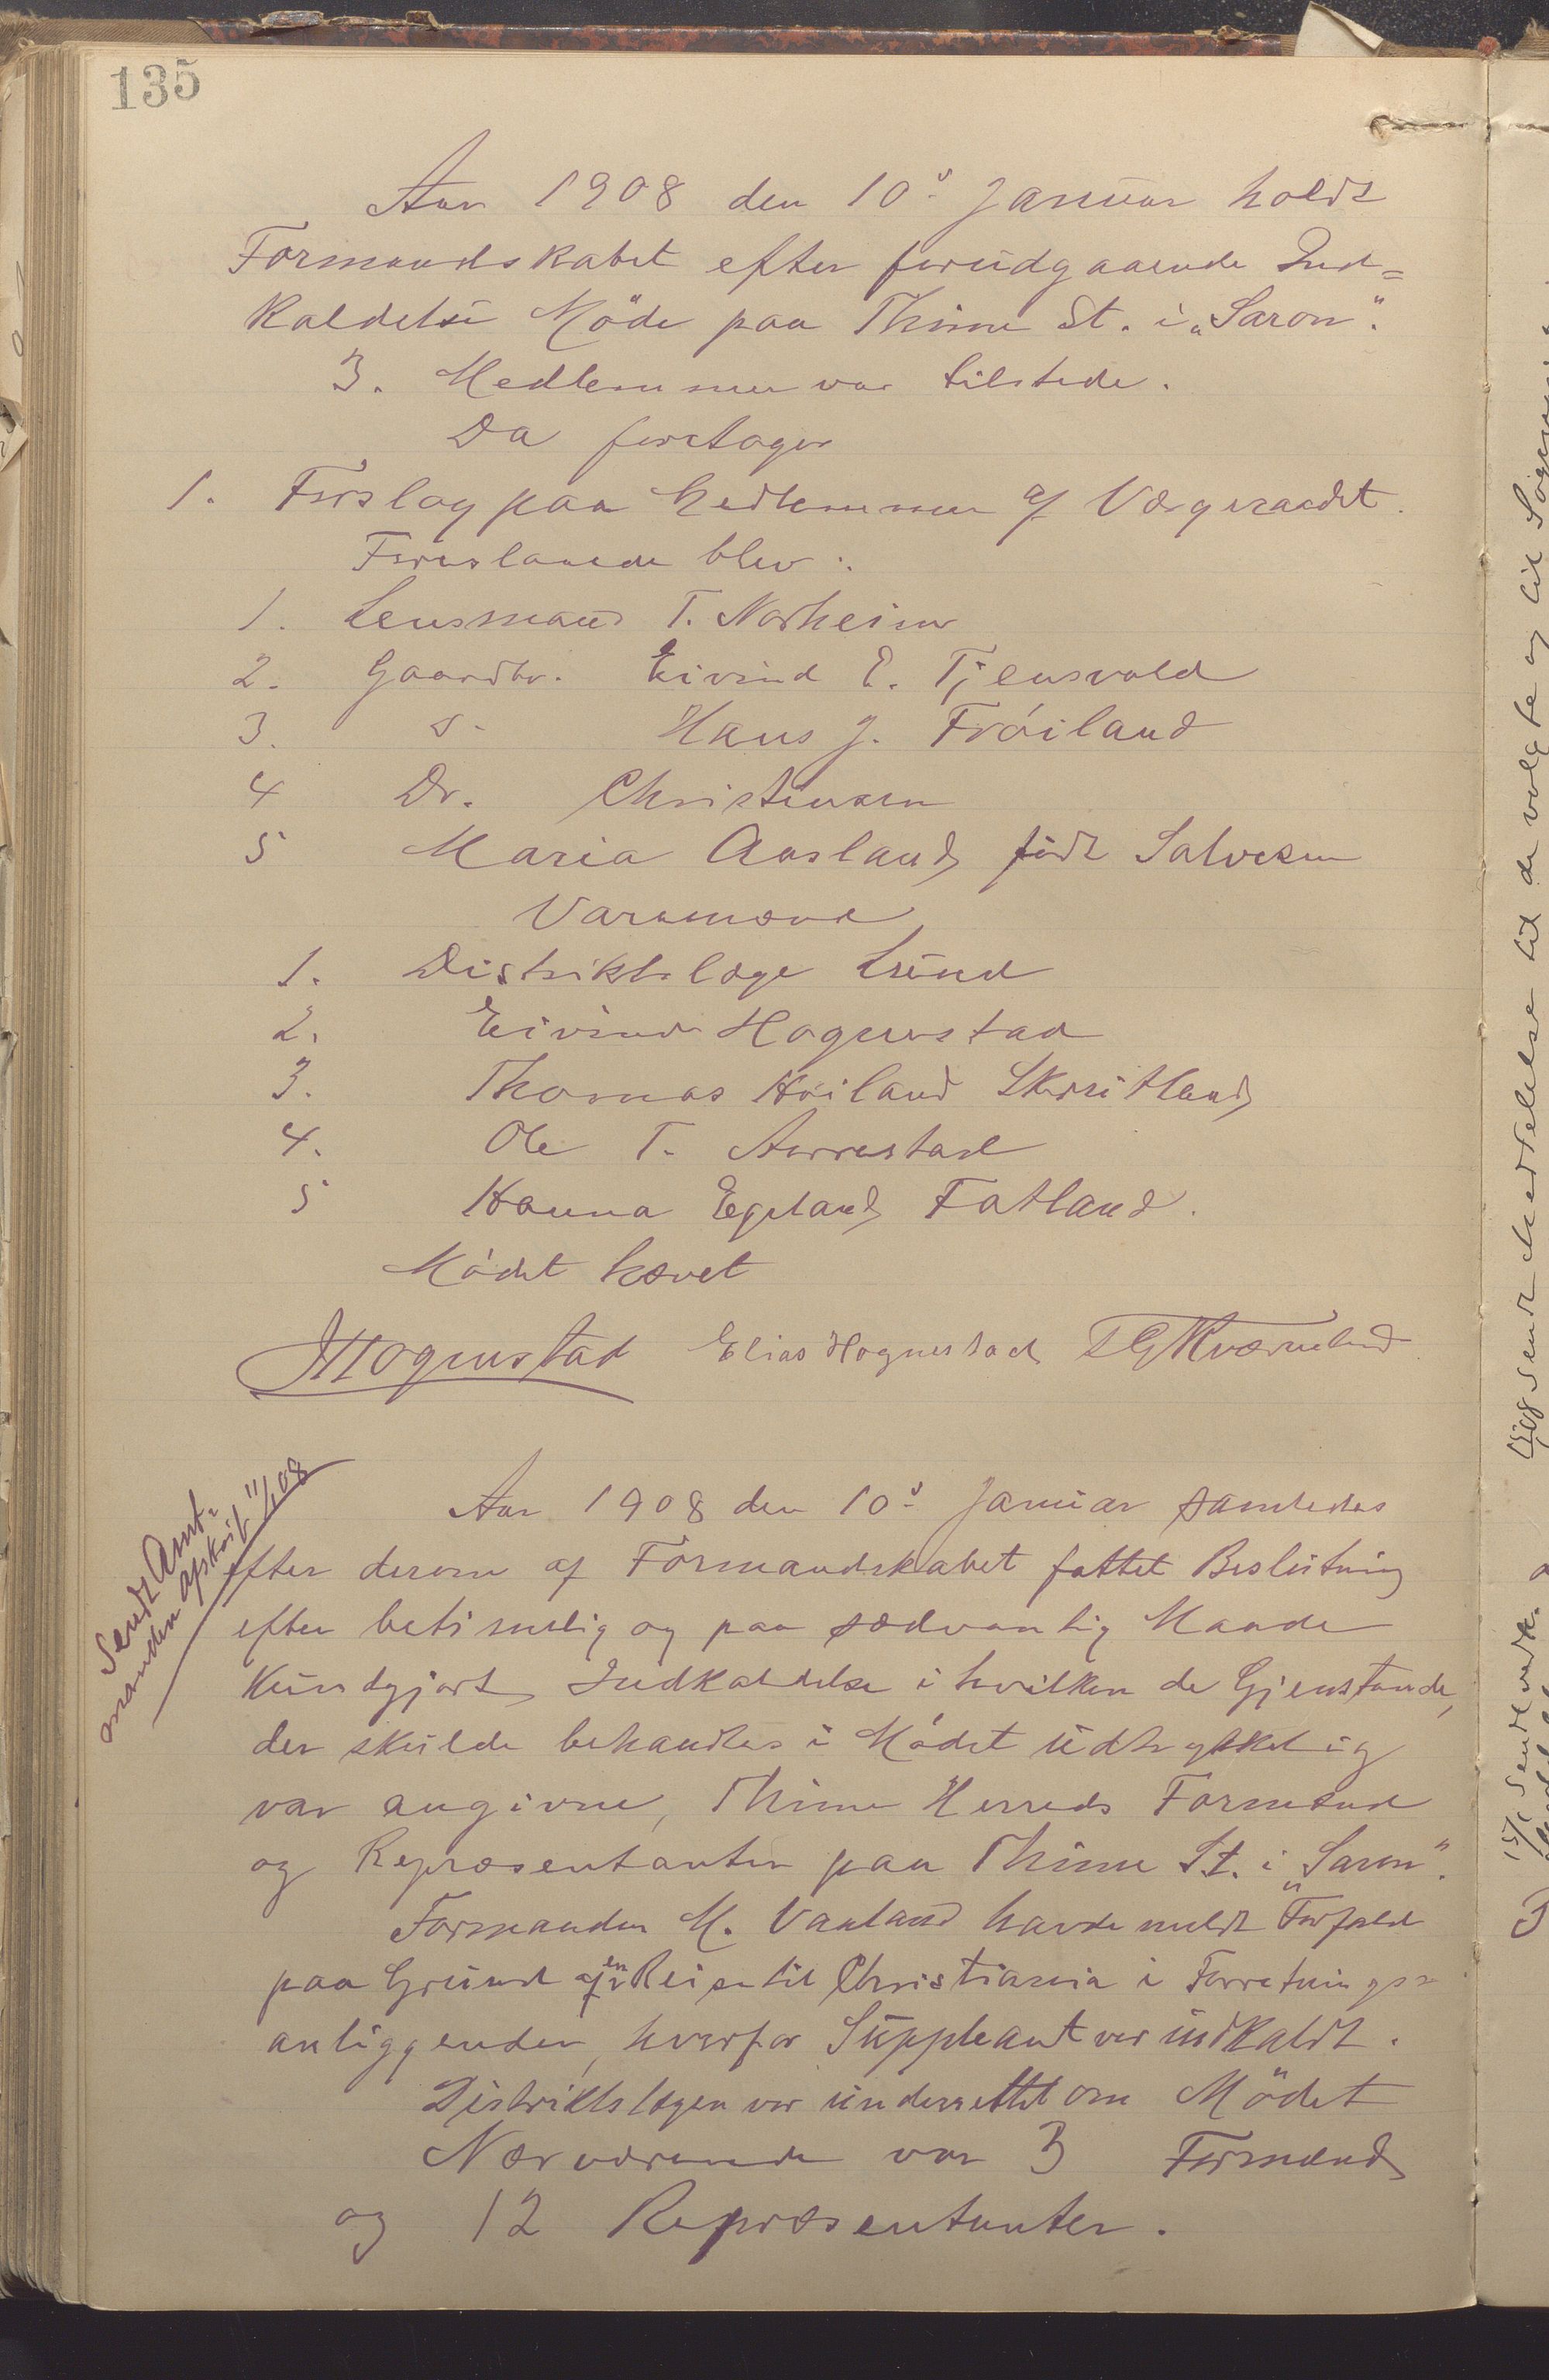 135
Aar 1908 den 10de Januar holdt
Formandskabet efter forudgaaende Ind=
kaldelse Möde paa Thime St. i „Saron”.
3. Medlemmer var tilstede.
Da foretoges
1. Forslag paa Medlemmer af Værgeraadet.
Foreslaaede blev:
1. Lensmand T. Norheim
2. Gaardbr. Eivind E. Tjensvold
3. d. Hans J. Fröiland
4 Dr. Christensen
5 Maria Aasland, födt Salvesen
Varamænd
1. Distriktslæge Lund
2. Eivind Hognestad
3. Thomas Höiland Skrudland
4. Ole T. Aarrestad
5 Hanna Egeland Fatland.
Mödet hævet
Hognestad Elias Hognestad Kværneland
Sendt Amt=
manden afskrift 11/1 08
Aar 1908 den 10de Januar samledes
efter derom af Formandskabet fattet Beslutning
efter betimelig og paa sædvanlig Maade
kundgjort Indkaldelse i hvilken de Gjenstande,
der skulde behandles i Mödet udtrykkelig
var angivne, Thime Herreds Formænd
og Repræsentanter paa Thime St. i „Saron”.
Formanden M. Vaaland havde meldt Forfald
paa Grund af en Reise til Christiania i Forretnings=
anliggender, hvorfor Suppleant var indkaldt.
Distriktslægen var underrettet om Mödet
Nærværende var 3 Formænd
og 12 Repræsentanter.